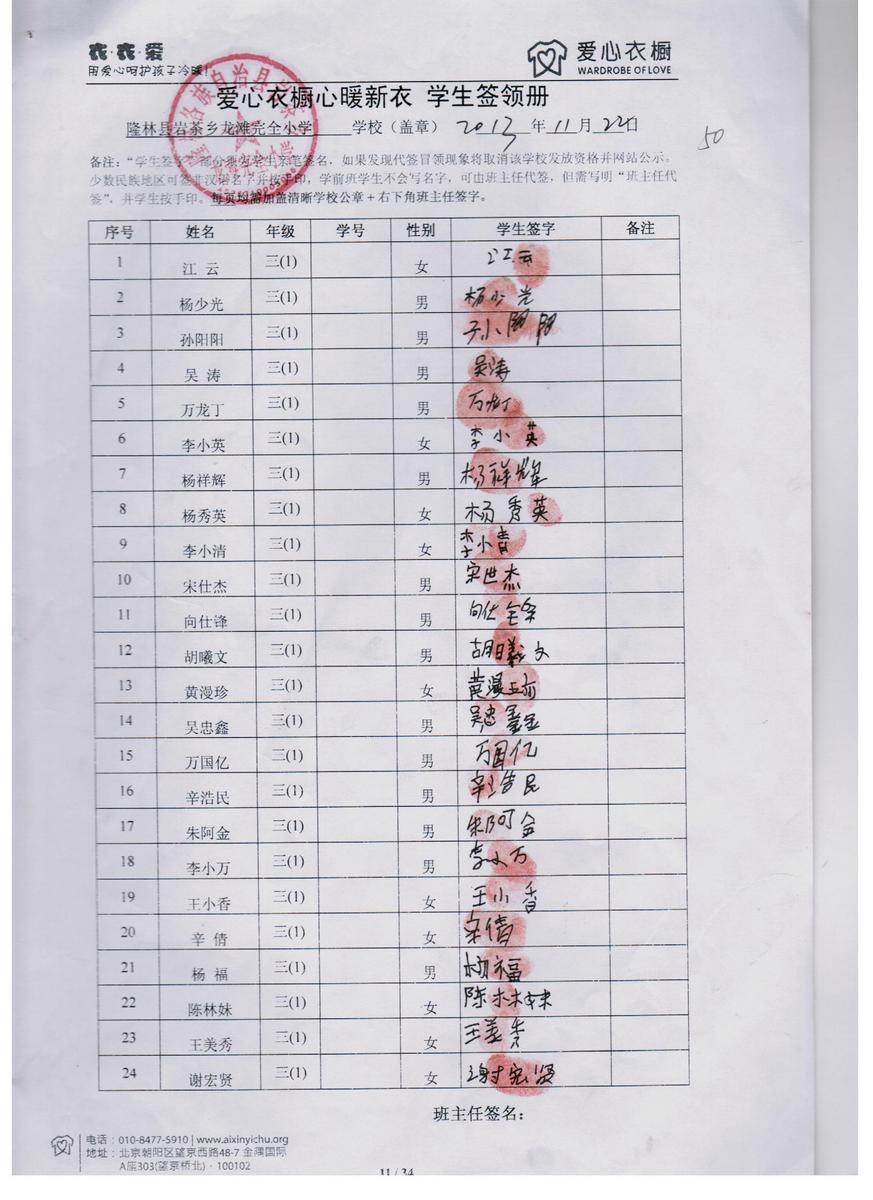 衣·衣·爱
用爱心呵护孩子冷暖!
爱心衣橱
WARDROBE OF LOVE
爱心衣橱心暖新衣 学生签领册
隆林县岩茶乡龙滩完全小学 学校（盖章） 2013 年 11 月 22日
50
备注：“学生签字”部分须为学生亲笔签名，如果发现代签冒领现象将取消该学校发放资格并网站公示。
少数民族地区可签非汉语名字并按手印，学前班学生不会写名字，可由班主任代签，但需写明“班主任代
签”，并学生按手印。每页均需加盖清晰学校公章+右下角班主任签字。
序号 姓名 年级 学号 性别 学生签字 备注
1 江 云 三(1) 女 江云
2 杨少光 三(1) 男 杨少光
3 孙阳阳 三(1) 男 孙阳阳
4 吴 涛 三(1) 男 吴涛
5 万龙丁 三(1) 男 万龙丁
6 李小英 三(1) 女 李小英
7 杨祥辉 三(1) 男 杨祥辉
8 杨秀英 三(1) 女 杨秀英
9 李小清 三(1) 女 李小青
10 宋仕杰 三(1) 男 宋世杰
11 向仕锋 三(1) 男 向仕锋
12 胡曦文 三(1) 男 胡曦文
13 黄漫珍 三(1) 女 黄漫珍
14 吴忠鑫 三(1) 男 吴忠鑫
15 万国亿 三(1) 男 万国亿
16 辛浩民 三(1) 男 辛浩民
17 朱阿金 三(1) 男 朱阿金
18 李小万 三(1) 男 李小万
19 王小香 三(1) 女 王小香
20 辛 倩 三(1) 女 辛倩
21 杨 福 三(1) 男 杨福
22 陈林妹 三(1) 女 陈林妹
23 王美秀 三(1) 女 王美秀
24 谢宏贤 三(1) 女 谢宏贤
班主任签名：
电话：010-8477-5910 | www.aixinyichu.org
地址：北京朝阳区望京西路48-7 金隅国际
A座303(望京桥北)·100102
11 / 34